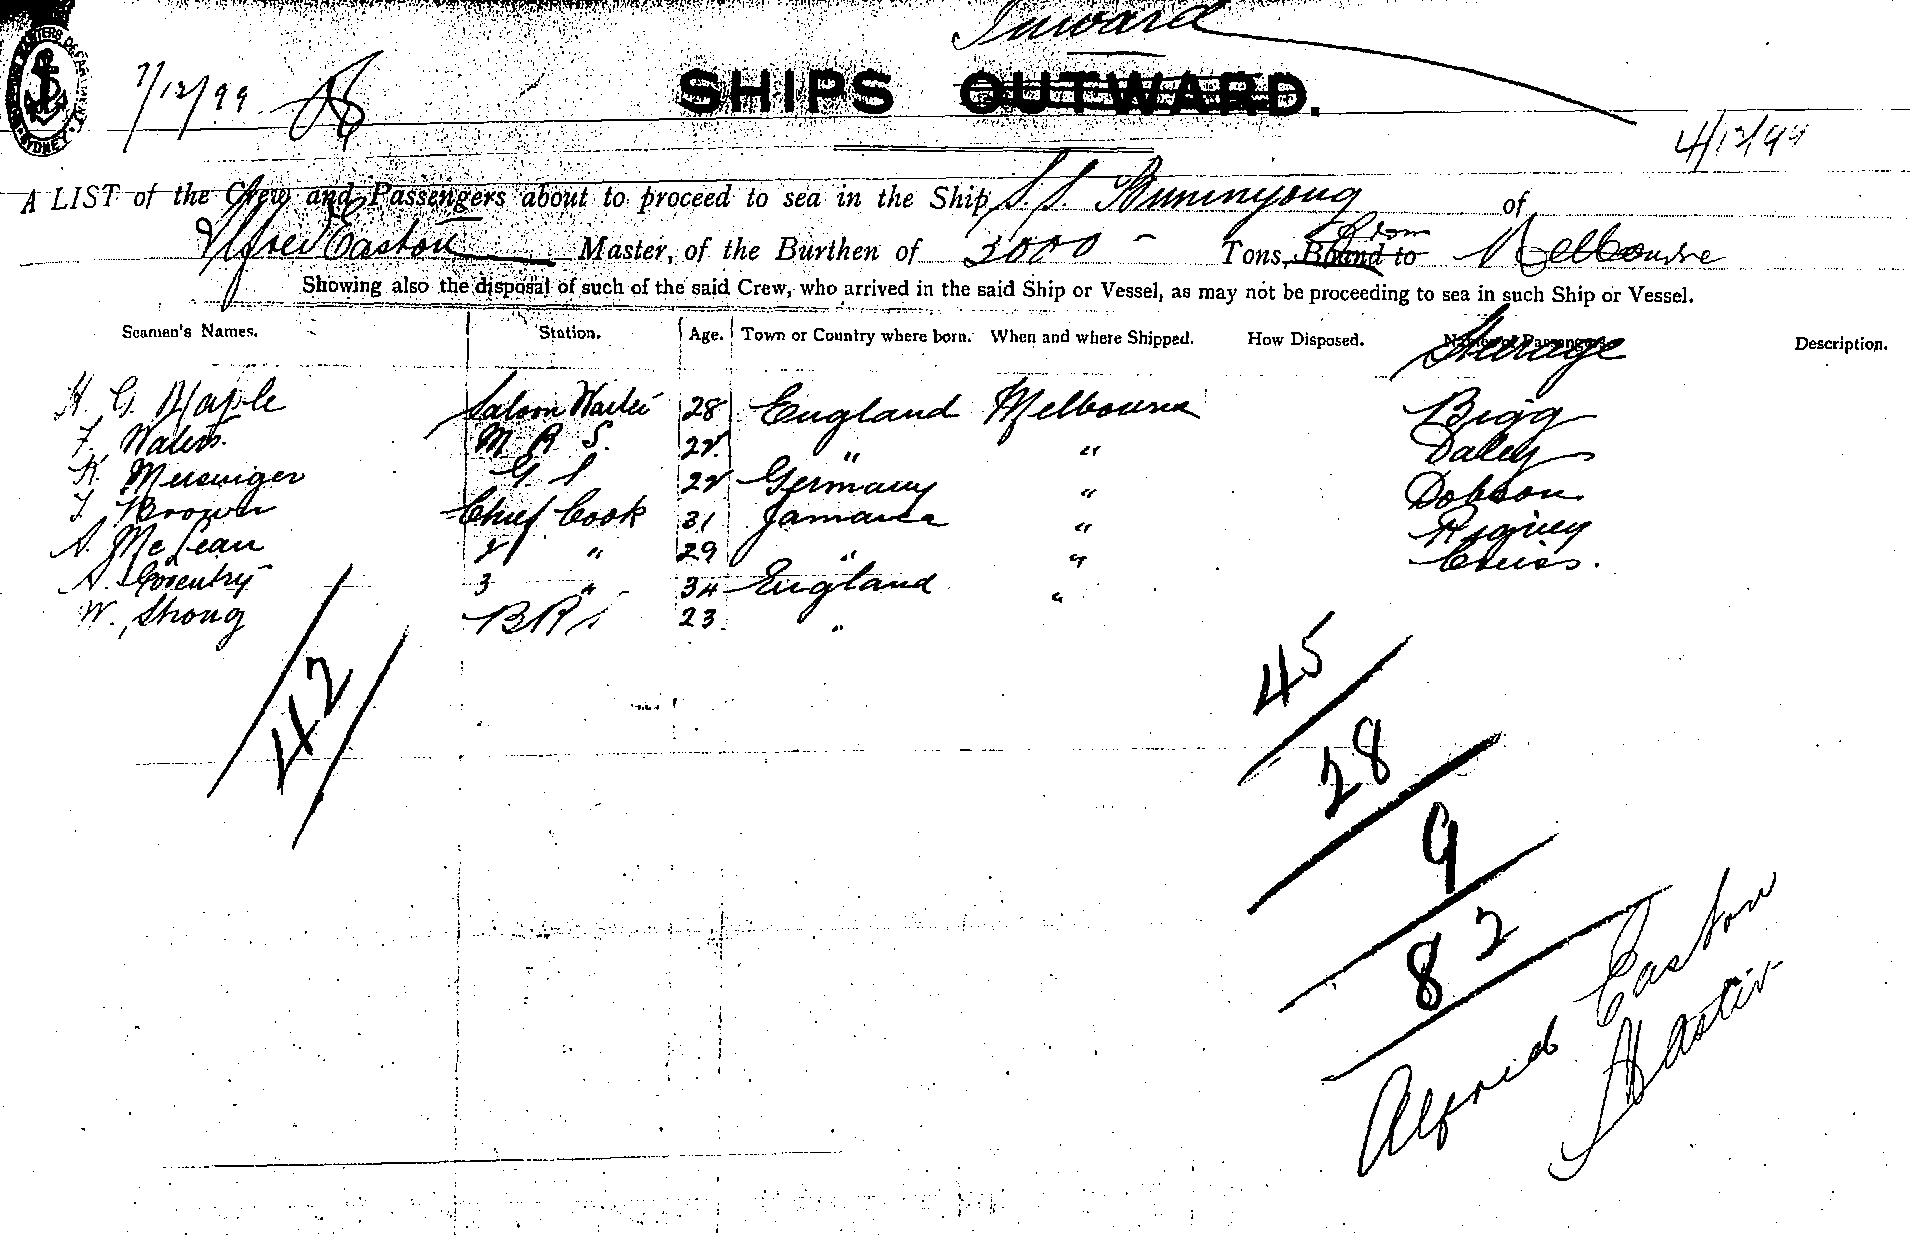 Inward
7/12/99
SHIPS OUTWARD.
4/12/99
A LIST of the Crew and Passengers about to proceed to sea in the Ship S.S. Buninyong of
Alfred Easton Master, of the Burthen of 3000 - Tons, Bound to from Melbourne
Showing also the disposal of such of the said Crew, who arrived in the said Ship or Vessel, as may not be proceeding to sea in such Ship or Vessel.
Seamen's Names. Station. Age. Town or Country where born. When and where Shipped. How Disposed. Steerage Description.
H. G. Maple Saloon Waiter 28 England Melbourne Bigg
F. Waters. M R S. 22 " " Daley
H. G S 22 Germany " Dobson
T Brown Chief Cook 31 Jamaica " Rigney
A. McLean 2 " 29 " "
A. Coventry 3 " 34 England "
W. Strong B R S 23 "
42
45
28
9
82
Alfred Easton
Master